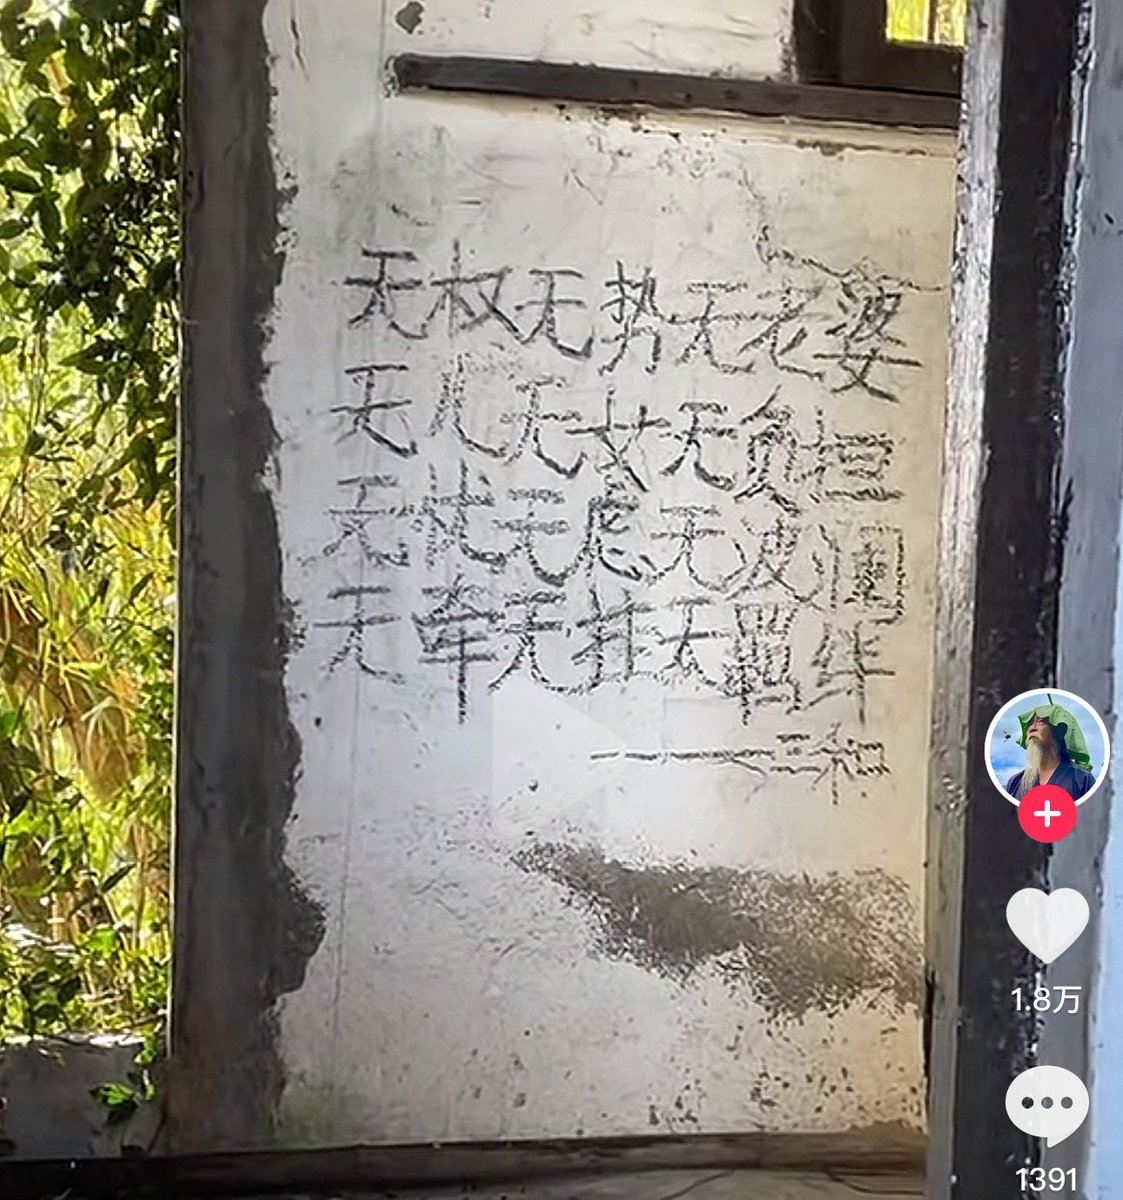 无权无势无老婆
无儿无女无负担
无忧无虑无波澜
无牵无挂无羁绊
——三和
1.8万
1391